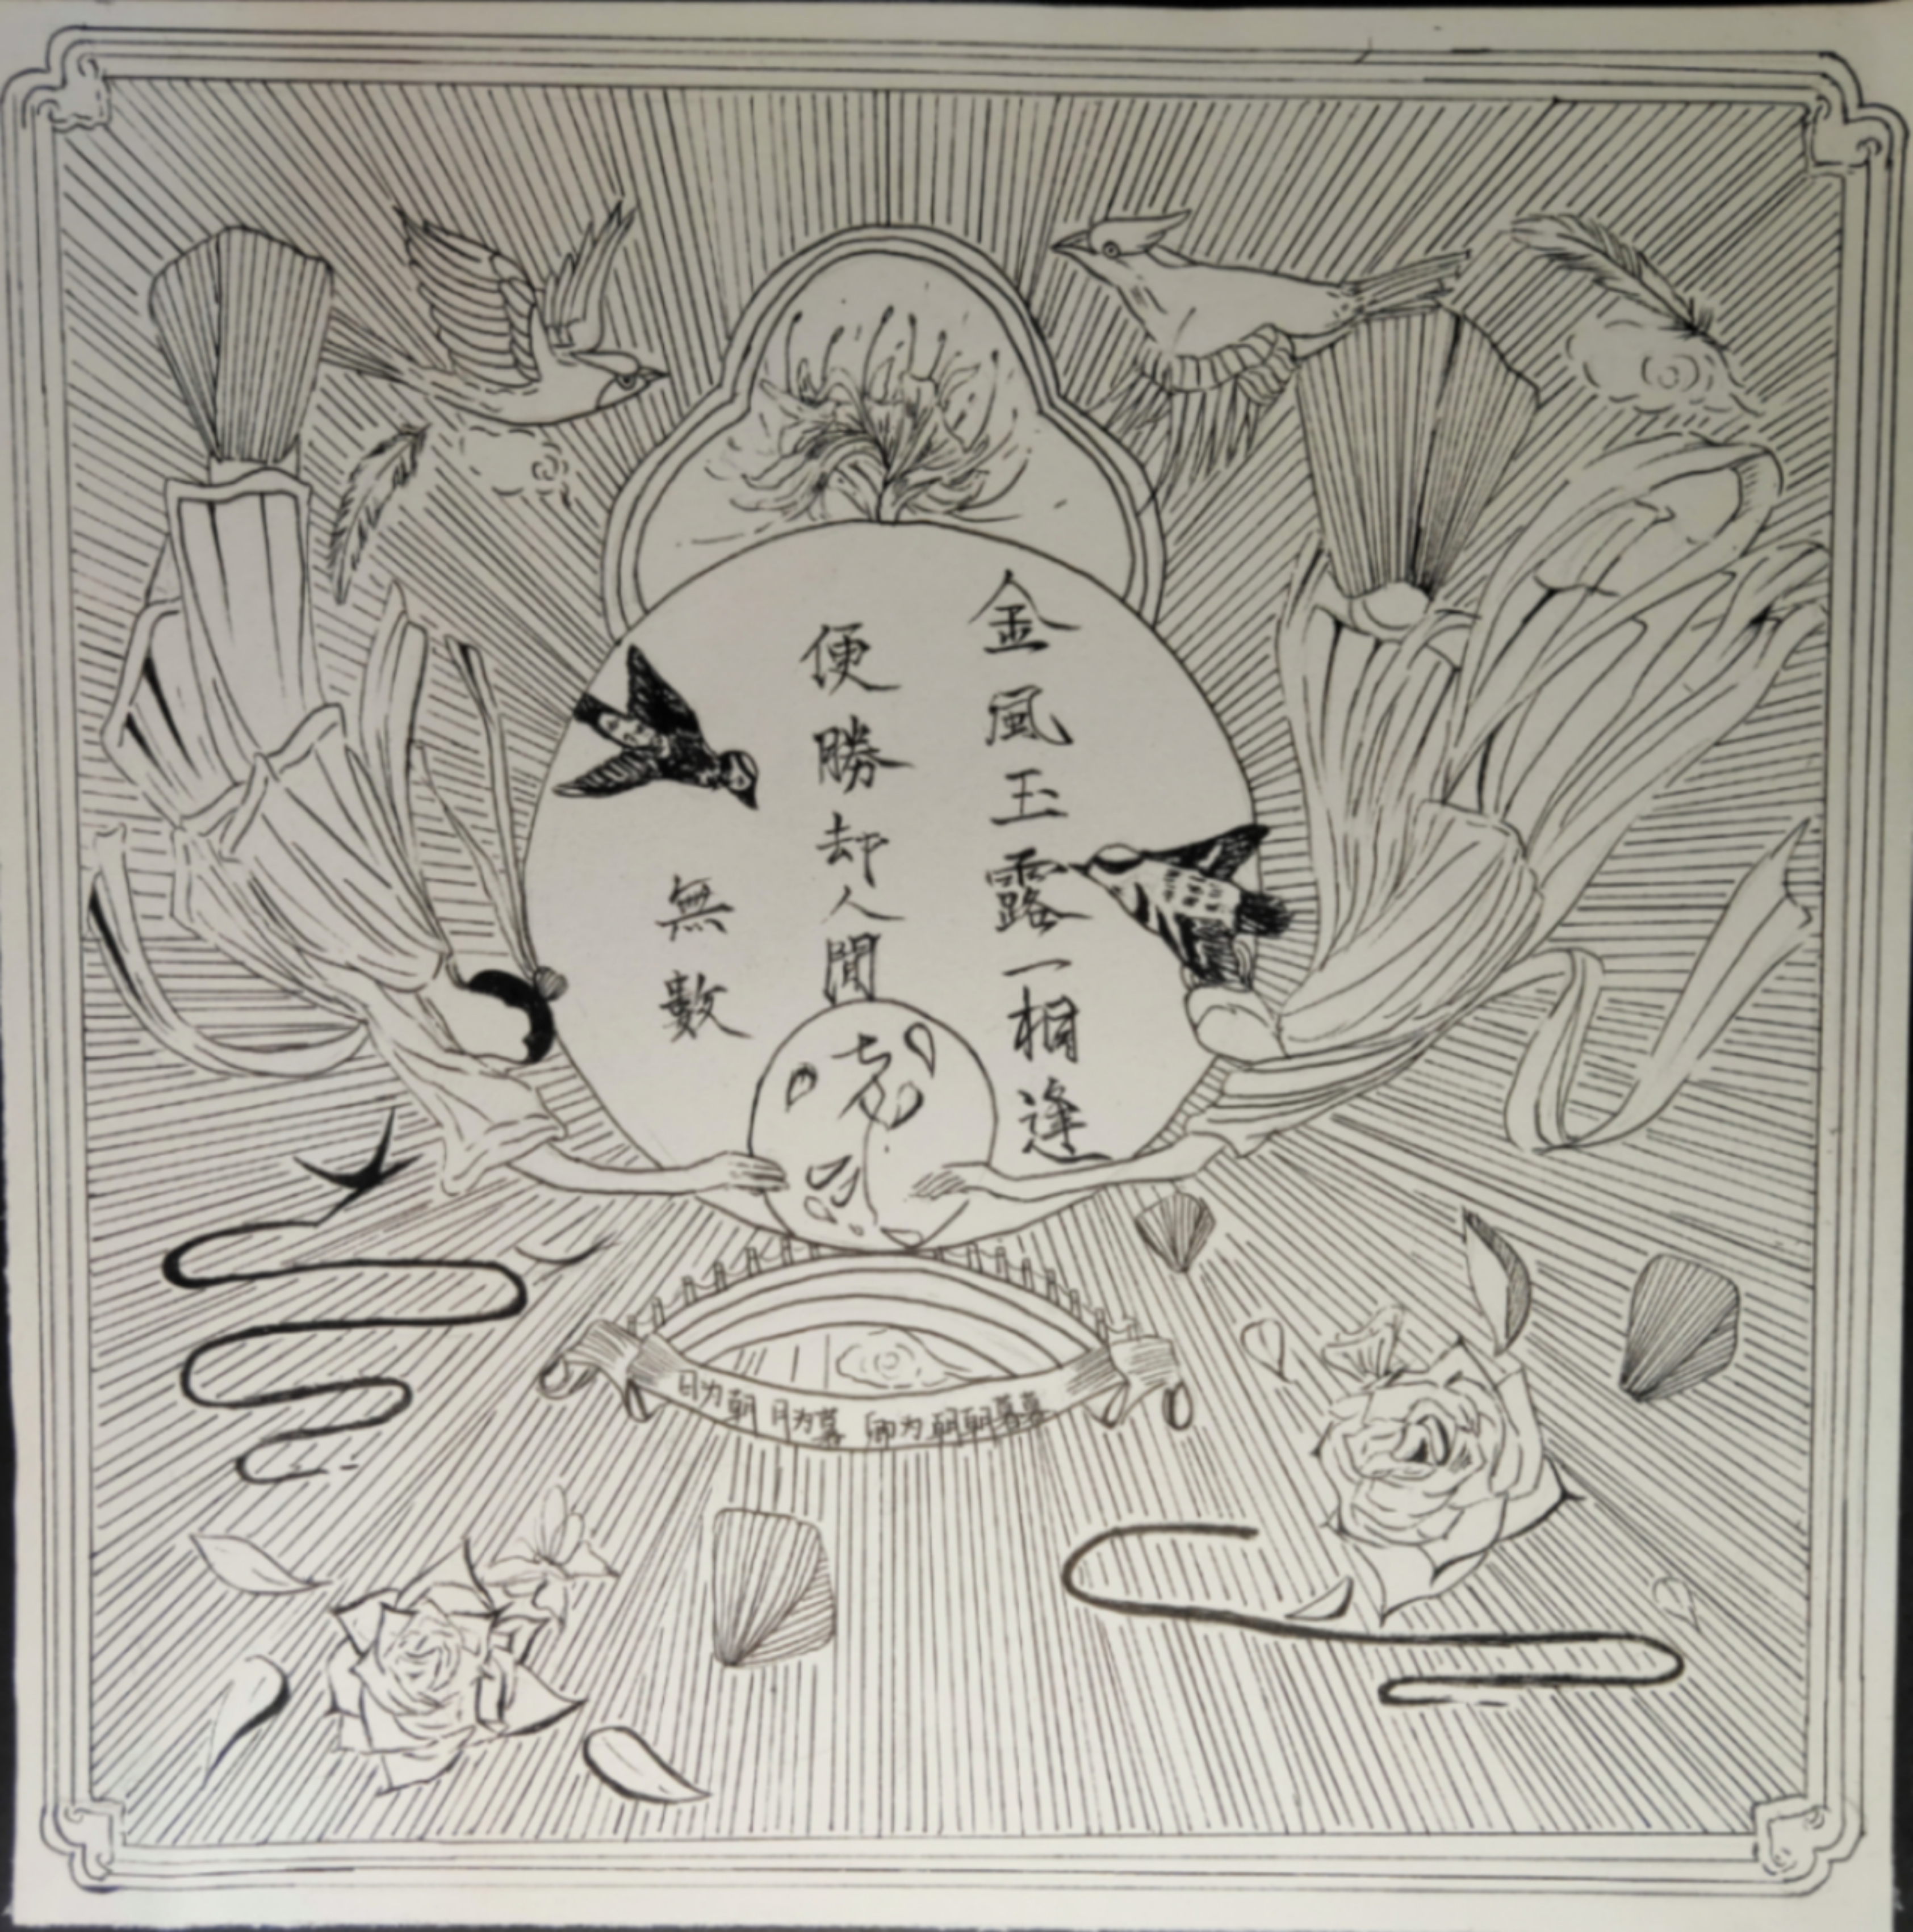 金風玉露一相逢
便勝却人間
無數
七夕
日为朝 月为暮 卿为朝朝暮暮